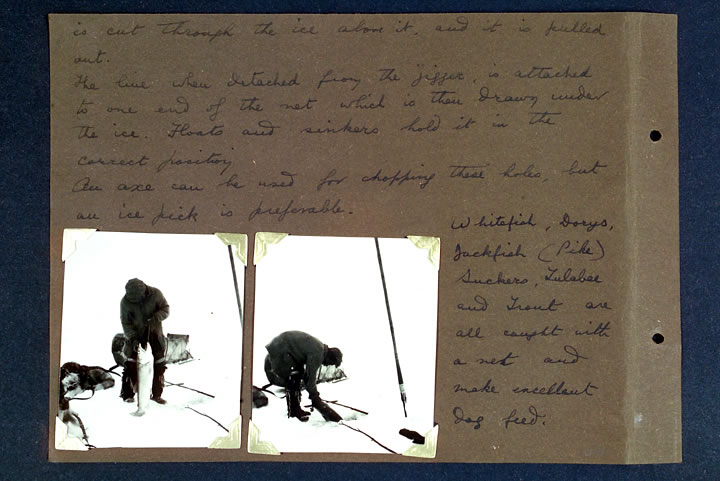 is cut through the ice above it. and it is pulled
out.
The line when detached from the "jigger", is attached
to one end of the net which is then drawn under
the ice. Floats and sinkers hold it in the
correct position
An axe can be used for chopping these holes, but
an ice pick is preferable.
Whitefish, Dorys,
Jackfish (Pike)
Suckers, Tulabee
and Trout are
all caught with
a net and
make excellant
dog feed.